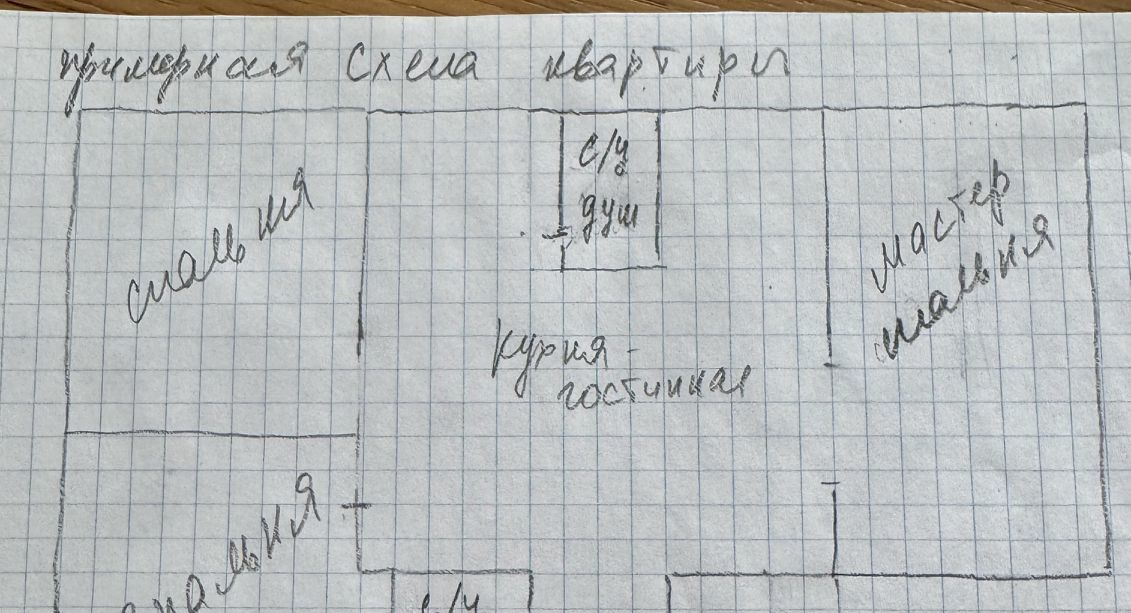 примерная схема квартиры
с/у
душ
спальня
мастер
спальня
кухня-
гостинная
спальня
с/у